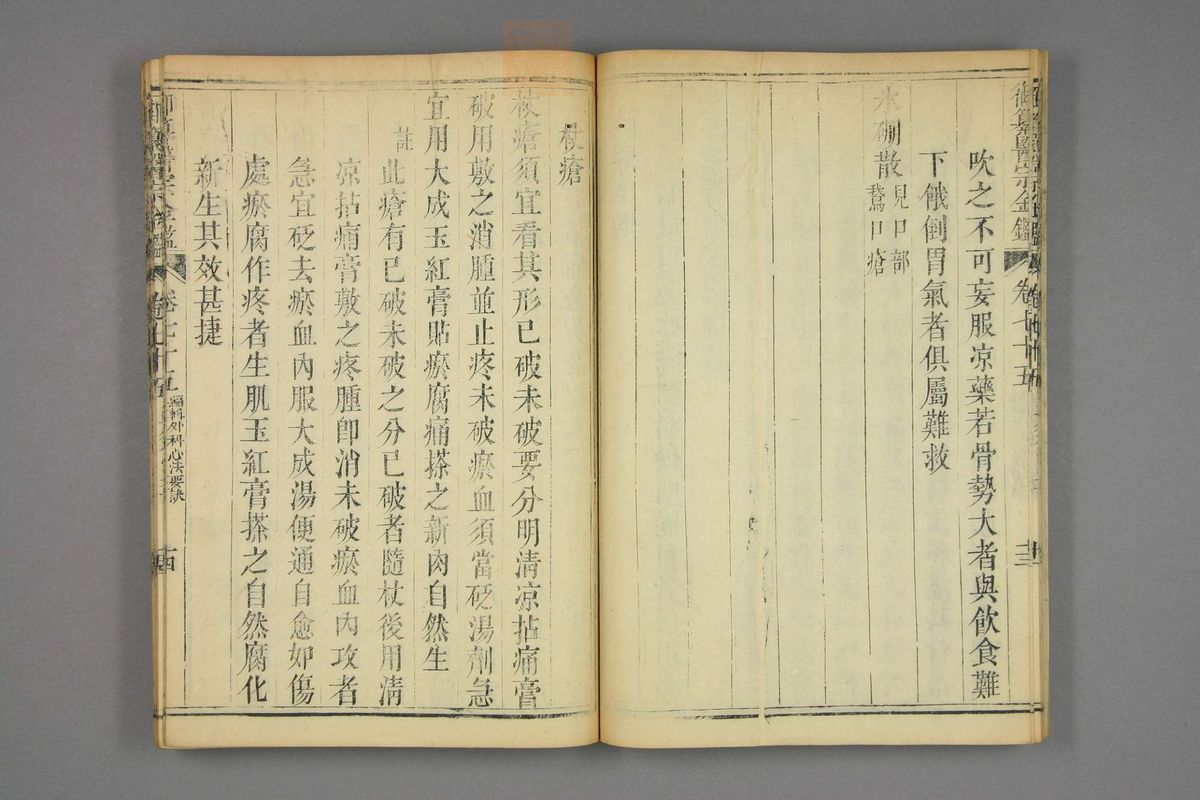 御纂醫宗金鑑
卷七十五
十三
吹之不可妄服凉藥若骨勢大者與飲食難
下餓倒胃氣者俱屬難救
冰硼散見口部
鵞口瘡
杖瘡
杖瘡須宜看其形已破未破要分明清凉拈痛膏
破用敷之消腫並止疼未破瘀血須當砭湯劑急
宜用大成玉紅膏貼瘀腐痛搽之新肉自然生
註此瘡有已破未破之分已破者隨杖後用清
凉拈痛膏敷之疼腫卽消未破瘀血內攻者
急宜砭去瘀血內服大成湯便通自愈如傷
處瘀腐作疼者生肌玉紅膏搽之自然腐化
新生其效甚捷
御纂醫宗金鑑
卷七十五
編輯外科心法要訣
十四